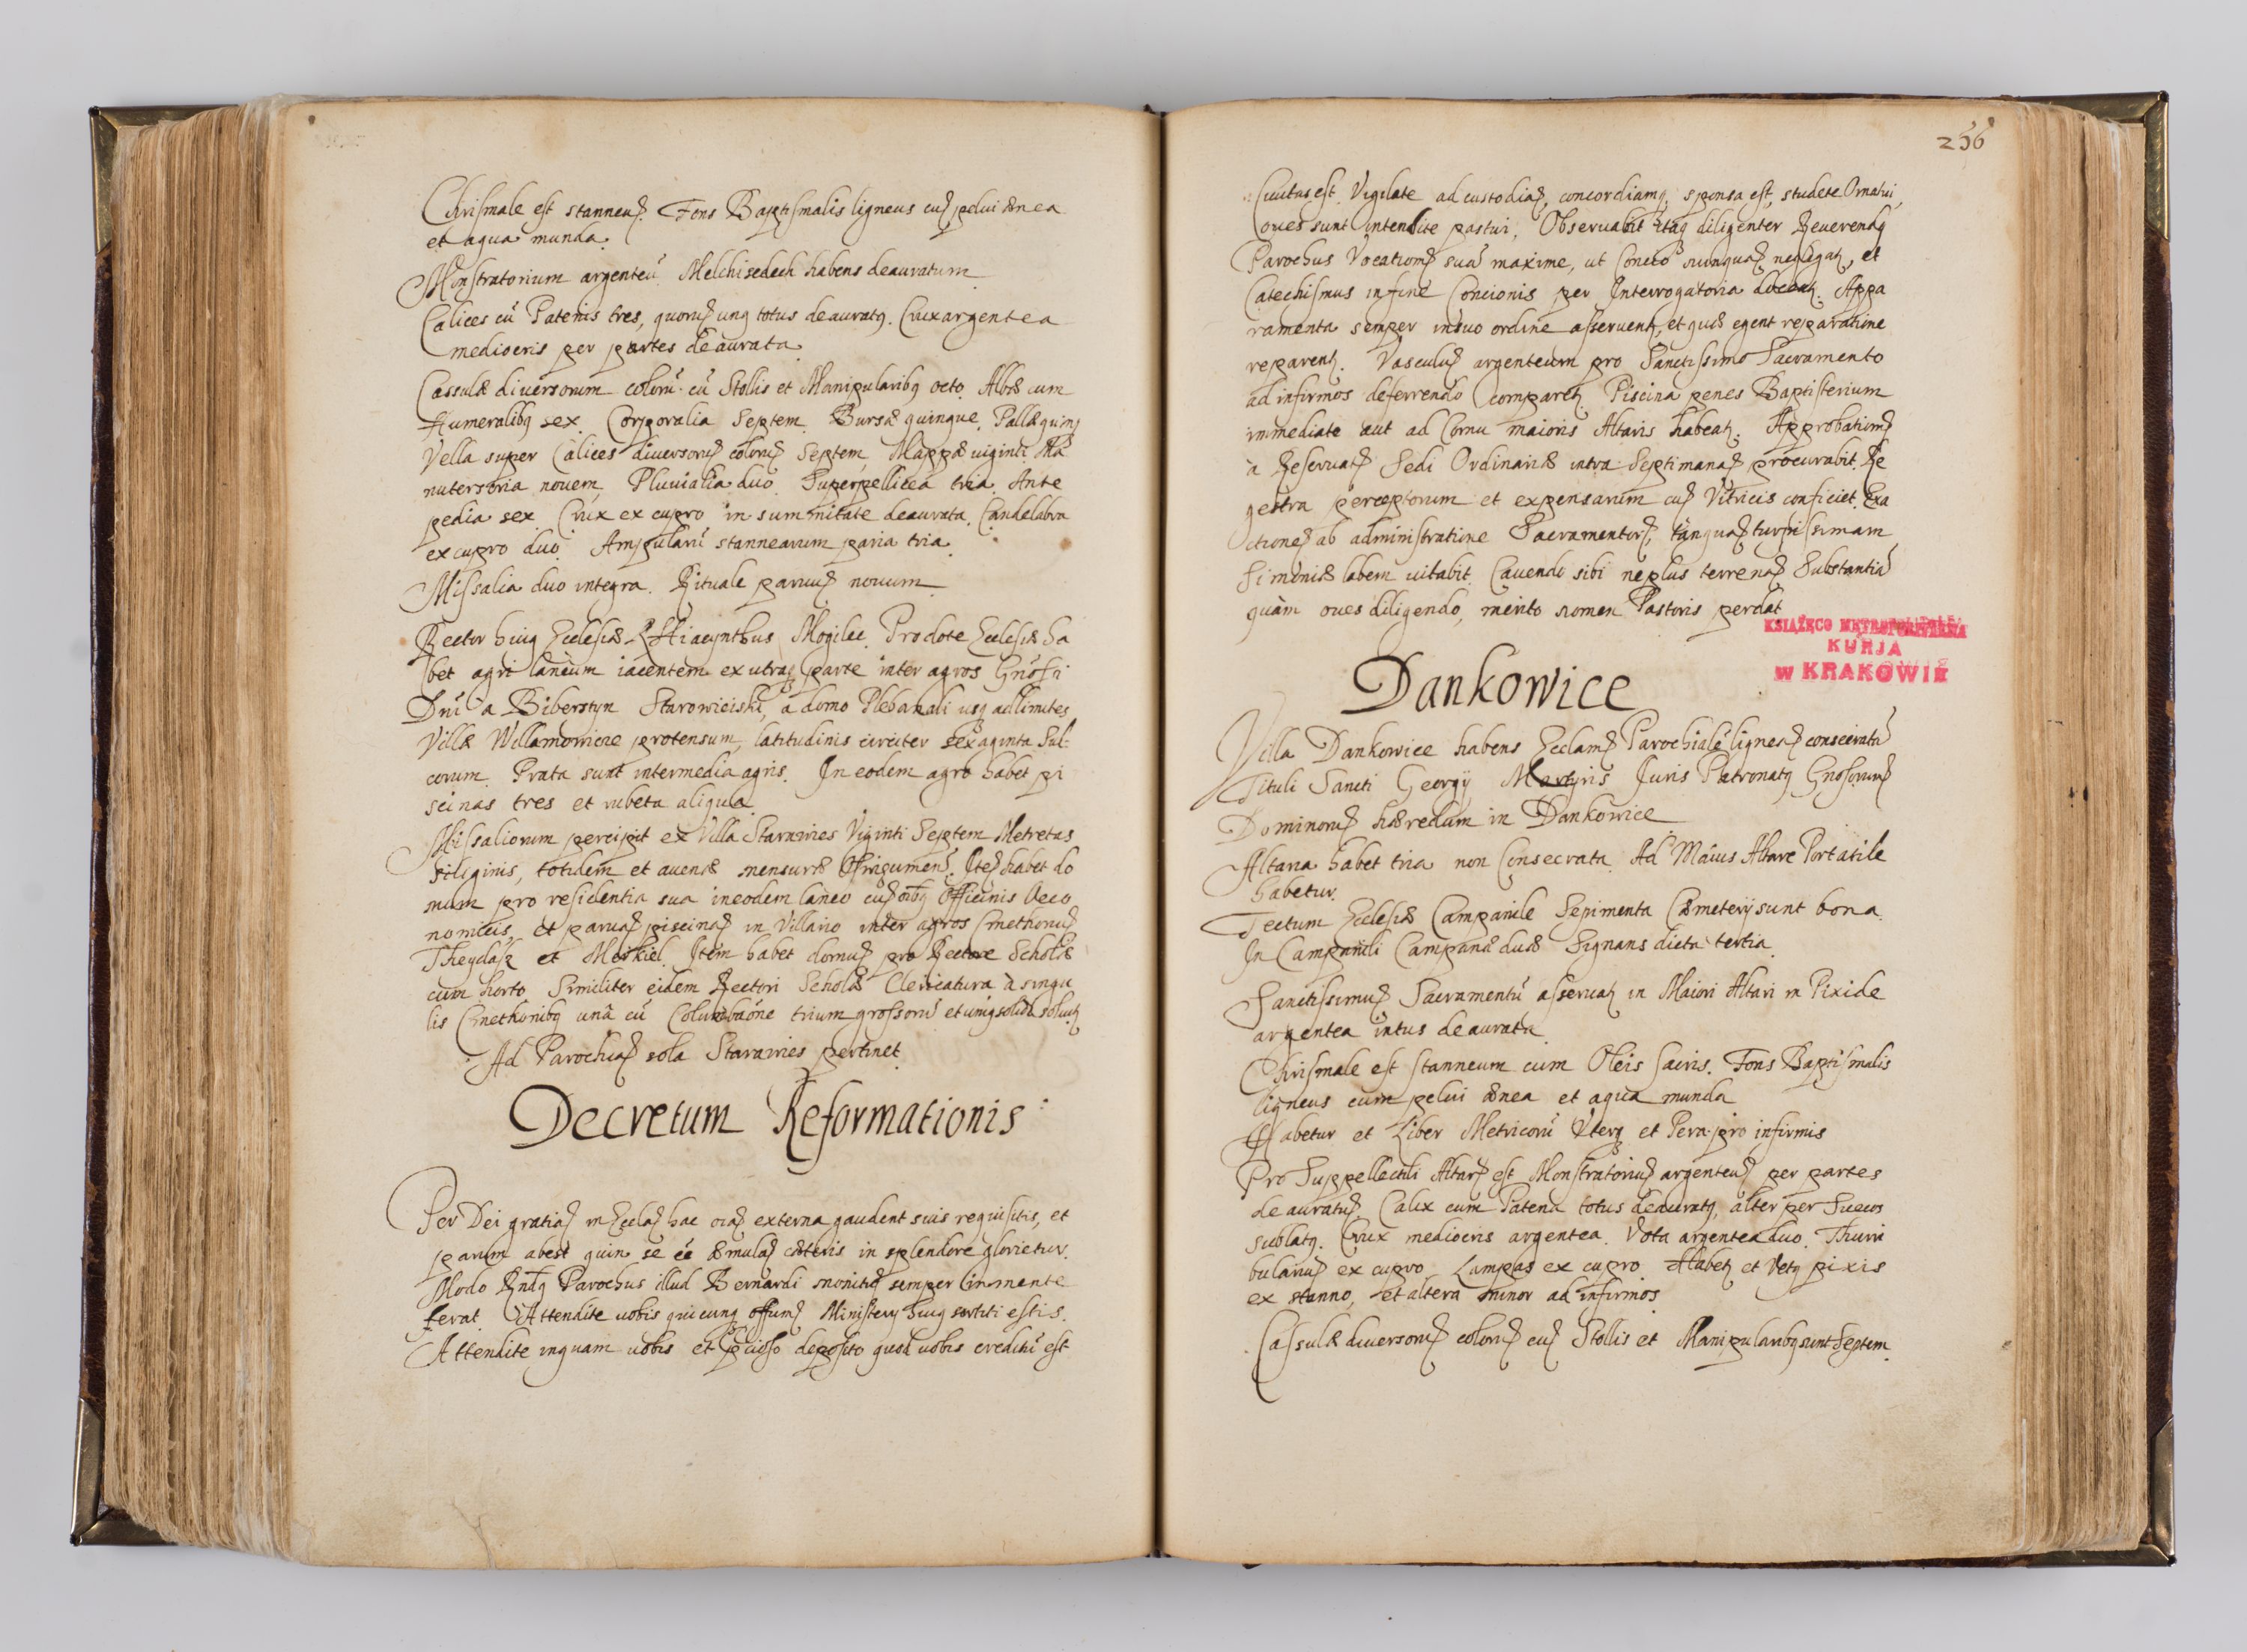 Chrismale est stanneũ. Fons Baptismalis ligneus cũ pelui ænea
et aqua munda.
Monstratorium argenteũ Melchisedech habens deauratum
Calices cũ Patenis tres, quorũ unq totus deauratq. Crux argentea
mediocris per partes deaurata.
Cassulæ diuersorum colorũ cũ Stolis et Manipularibq octo. Albæ cum
Humeralibq sex. Corporalia Septem. Bursæ quinque. Pallæ quinq
Vella super Calices diuersorũ colorũ Septem, Mappæ uiginti. Ma
nutersoria nouem, Pluuialia duo. Superpellicea tria. Ante
pedia sex. Crux ex cupro in summitate deaurata. Candelabra
ex cupro duo. Ampularũ stannearum paria tria.
Missalia duo integra. Rituale paruũ nouum
Rector huiq Ecclesiæ R Hiacynthus Mogilec. Pro dote Ecclesiæ ha
bet agri laneum iacentem ex utraq parte inter agros Gnosi
Dñi a Biberstyn Starowieiski, a domo Plebanali usq ad limites
Villæ Willamowicze protensum, latitudinis circiter sexaginta Sul-
corum. Prata sunt intermedia agris. In eodem agro habet pi
scinas tres et rubeta aliqua
Missalium percipit ex Villa Starawies Viginti Septem Metretas
siliginis, totidem et auenæ mensuræ Oswięcimen. Itẽ habet do
mum pro residentia sua in eodem laneo cũ oĩbq Officinis Oeco
nomicis, et paruã piscinã in Villario inter agros Cmethonũ
Theydasz et Meskiel. Item habet domũ pro Rectore Scholæ
cum horto Similiter eidem Rectori Scholæ Clericatura à singu
lis Cmethonibq unà cũ Columbaõne trium grossorũ et uniq solidi soluitʒ
Ad Parochiã sola Starawies pertinet
Decretum Reformationis
Per Dei gratiã in Ecclã hac oĩa externa gaudent suis requisitis, et
parum abest quin se eẽ æmulã cæteris in splendore glorietur.
Modo Rndq Parochus illud Bernardi monitũ semper in mente
ferat. Attendite uobis quicunq offium Ministerij huiq sortiti estis.
Attendite inquam uobis et p̃cioso deposito quod uobis creditũ est
256
Ciuitas est Vigilate ad custodiã, concordiamq, sponsa est, studete Ornatui,
oues sunt intendite pastui. Obseruabit itaq diligenter Reuerendq
Parochus Vocationẽ suã maxime, ut Concio nunquã neglegatʒ, et
Catechismus in fine Concionis per Interrogatoria doceatʒ. Appa
ramenta semper in suo ordine asseruentʒ, et quæ egent reparatione
reparentʒ. Vasculũ argenteum pro Sanctissimo Sacramento
ad infirmos deferrendo comparetʒ Piscina penes Baptisterium
immediate aut ad Cornu maioris Altaris habeatʒ. Approbationẽ
à Reseruatĩ Sedi Ordinariæ intra Septimanã procurabit. Re
gestra perceptorum et expensarum cũ Vitricis conficiet. Exa
ctionẽ ab administratione Sacramentorũ, tanquã turpissimam
Simoniæ labem uitabit. Cauendo sibi ne plus terrenã Substantiã
quàm oues diligendo, merito nomen Pastoris perdat
KSIĄŻĘCO METROPOLITALNA
KURJA
w KRAKOWIE
Dankowice
Villa Dankowice habens Ecclamẽ Parochialẽ ligneã consecratã
Tituli Sancti Georgij Martyris Juris Patronatq Gnosorum
Dominorũ hæredum in Dankowice
Altaria habet tria non Consecrata. Ad Maius Altare Portatile
habetur.
Tectum Ecclesiæ Campanile Sepimenta Cæmeterij sunt bona
In Campanili Campanæ duæ Signans dicta tertia
Sanctissimũ Sacramentũ asseruatʒ in Maiori Altari in Pixide
argentea intus deaurata
Chrismale est stanneum cum Oleis sacris. Fons Baptismalis
ligneus cum pelui ænea et aqua munda
Habetur et Liber Metricorũ Uterq et Pera pro infirmis
Pro Suppellectili Altarĩ est Monstratoriũ argenteũ per partes
deauratũ. Calix cum Patena totus deauratq, alter per Suecos
sublatq. Crux mediocris argentea. Vota argentea duo. Thuri
bulariũ ex cupro, Lampas ex cupro. Habetʒ et Vetq pixis
ex stanno, et altera minor ad infirmos
Cassulæ diuersorũ colorũ cũ Stollis et Manipularibq sunt Septem